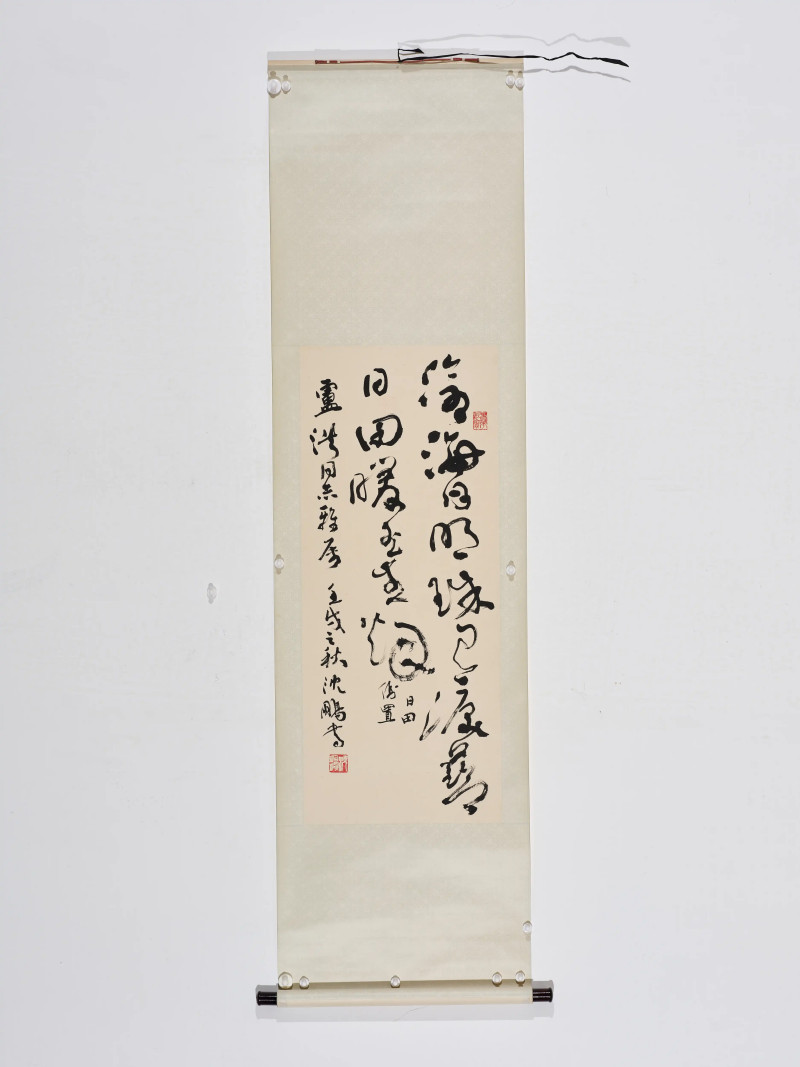 滄海月明珠有淚藍
日田暖玉生烟
日田
倒置
盧浩同志雅屬 壬戌之秋沈鵬書